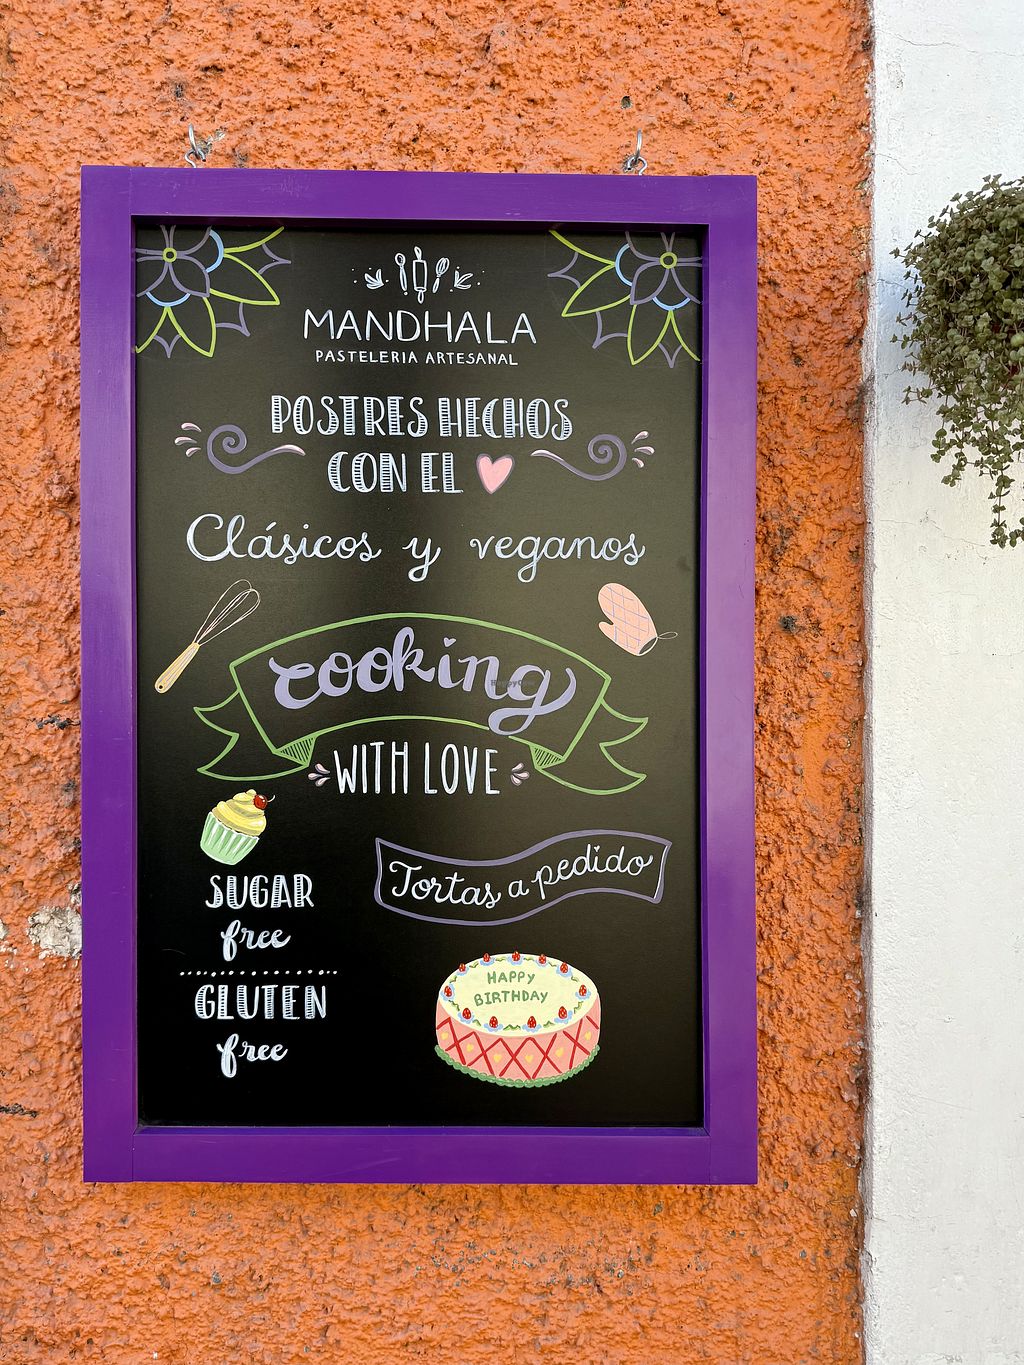 MANDHALA
PASTELERIA ARTESANAL
POSTRES HECHOS
CON EL
Clásicos y veganos
cooking
WITH LOVE
Tortas a pedido
SUGAR
free
GLUTEN
free
HAPPY
BIRTHDAY